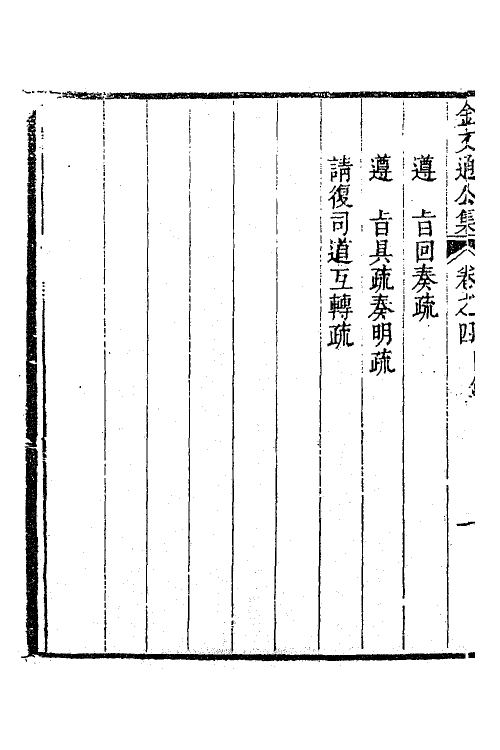 金文通公集 卷之四目錄 一
遵 㫖回奏疏
遵 㫖具疏奏明疏
請復司道互轉疏